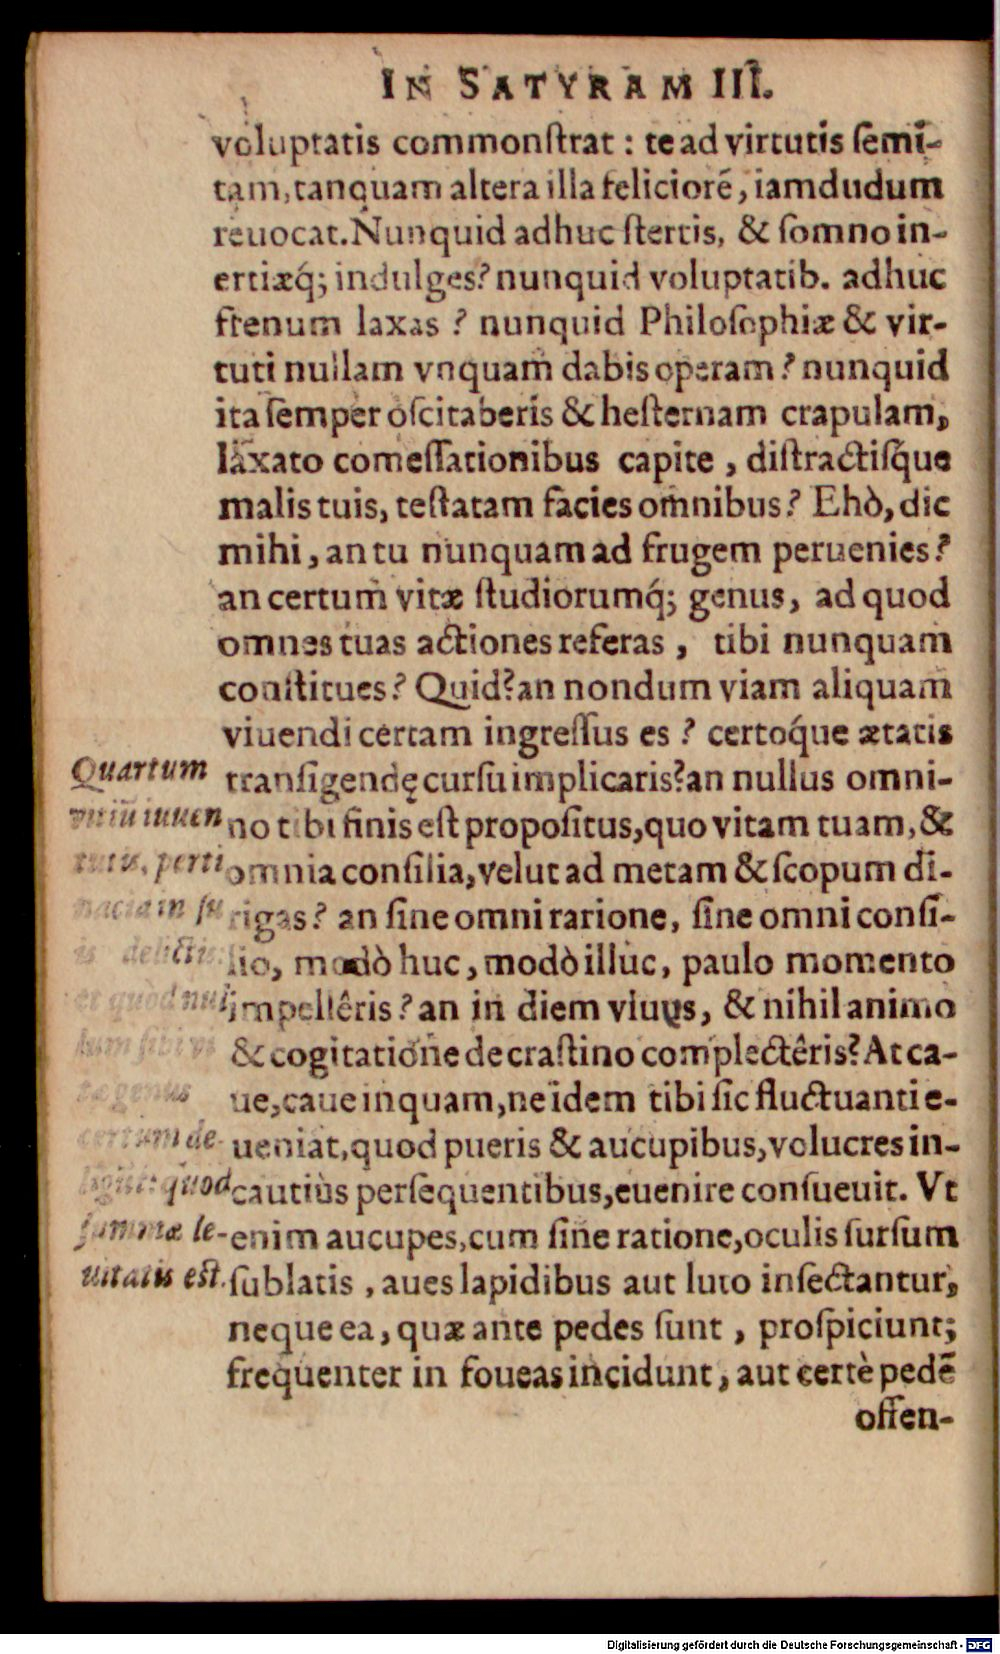 IN SATYRAM III.
voluptatis commonſtrat : te ad virtutis ſemī-
tam, tanquam altera illa feliciorē, iamdudum
reuocat. Nunquid adhuc ſtertis, & ſomno in-
ertiæq́; indulges? nunquid voluptatib. adhuc
frenum laxas ? nunquid Philoſophiæ & vir-
tuti nullam vnquam dabis operam? nunquid
ita ſemper oſcitaberis & heſternam crapulam,
laxato comeſſationibus capite , diſtractiſq́ue
malis tuis, teſtatam facies omnibus? Ehò, dic
mihi, an tu nunquam ad frugem peruenies?
an certum vitæ ſtudiorumq́; genus, ad quod
omnes tuas actiones referas , tibi nunquam
conſtitues? Quid? an nondum viam aliquam
viuendi certam ingreſſus es ? certoq́ue ætatis
tranſigendę curſu implicaris? an nullus omni-
no tibi finis eſt propoſitus, quo vitam tuam, &
omnia conſilia, velut ad metam & ſcopum di-
rigas? an ſine omni ratione, ſine omni conſi-
lio, modò huc, modò illuc, paulo momento
impellêris? an in diem viuis, & nihil animo
& cogitatione de craſtino complectêris? At ca-
ue, caue inquam, ne idem tibi ſic fluctuanti e-
ueniat, quod pueris & aucupibus, volucres in-
cautiùs perſequentibus, euenire conſueuit. Vt
enim aucupes, cum ſine ratione, oculis ſurſum
ſublatis , aues lapidibus aut luto inſectantur,
neque ea, quæ ante pedes ſunt , proſpiciunt;
frequenter in foueas incidunt, aut certè pedē
offen-
Quartum
vitiū iuuen
tutis, perti
nacia in ſu
is delictis:
et quòd nul
lum ſibi vi
tæ genus
certum de-
ligit: quod
ſummæ le-
uitatis eſt.
Digitalisierung gefördert durch die Deutsche Forschungsgemeinschaft - DFG